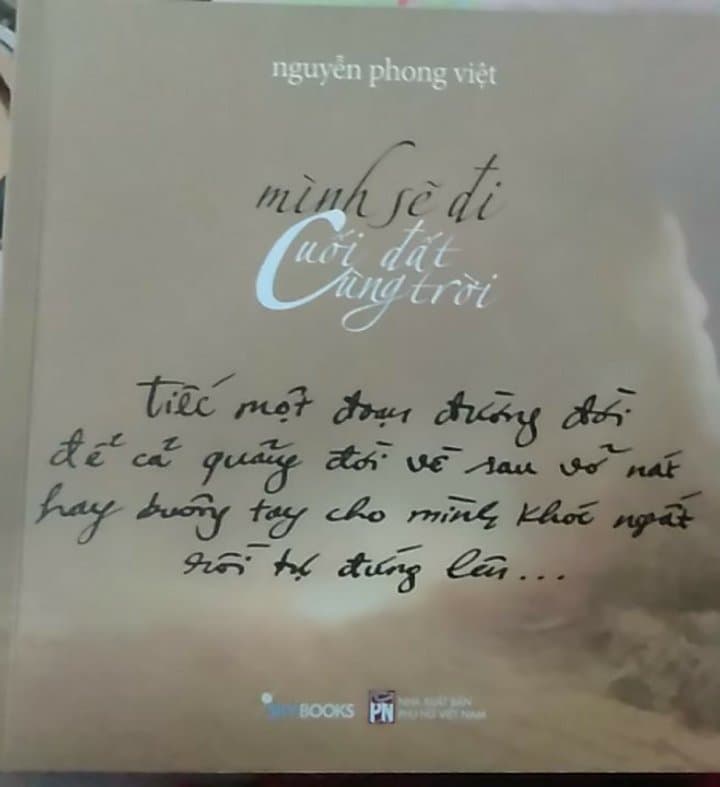 nguyễn phong việt
mình sẽ đi
Cuối đất
Cùng trời
Tiếc một đoạn đường đời
để cả quãng đời về sau vỡ nát
hay buông tay cho mình khóc ngất
rồi tự đứng lên...
SKYBOOKS
PN
NHÀ XUẤT BẢN
PHỤ NỮ VIỆT NAM